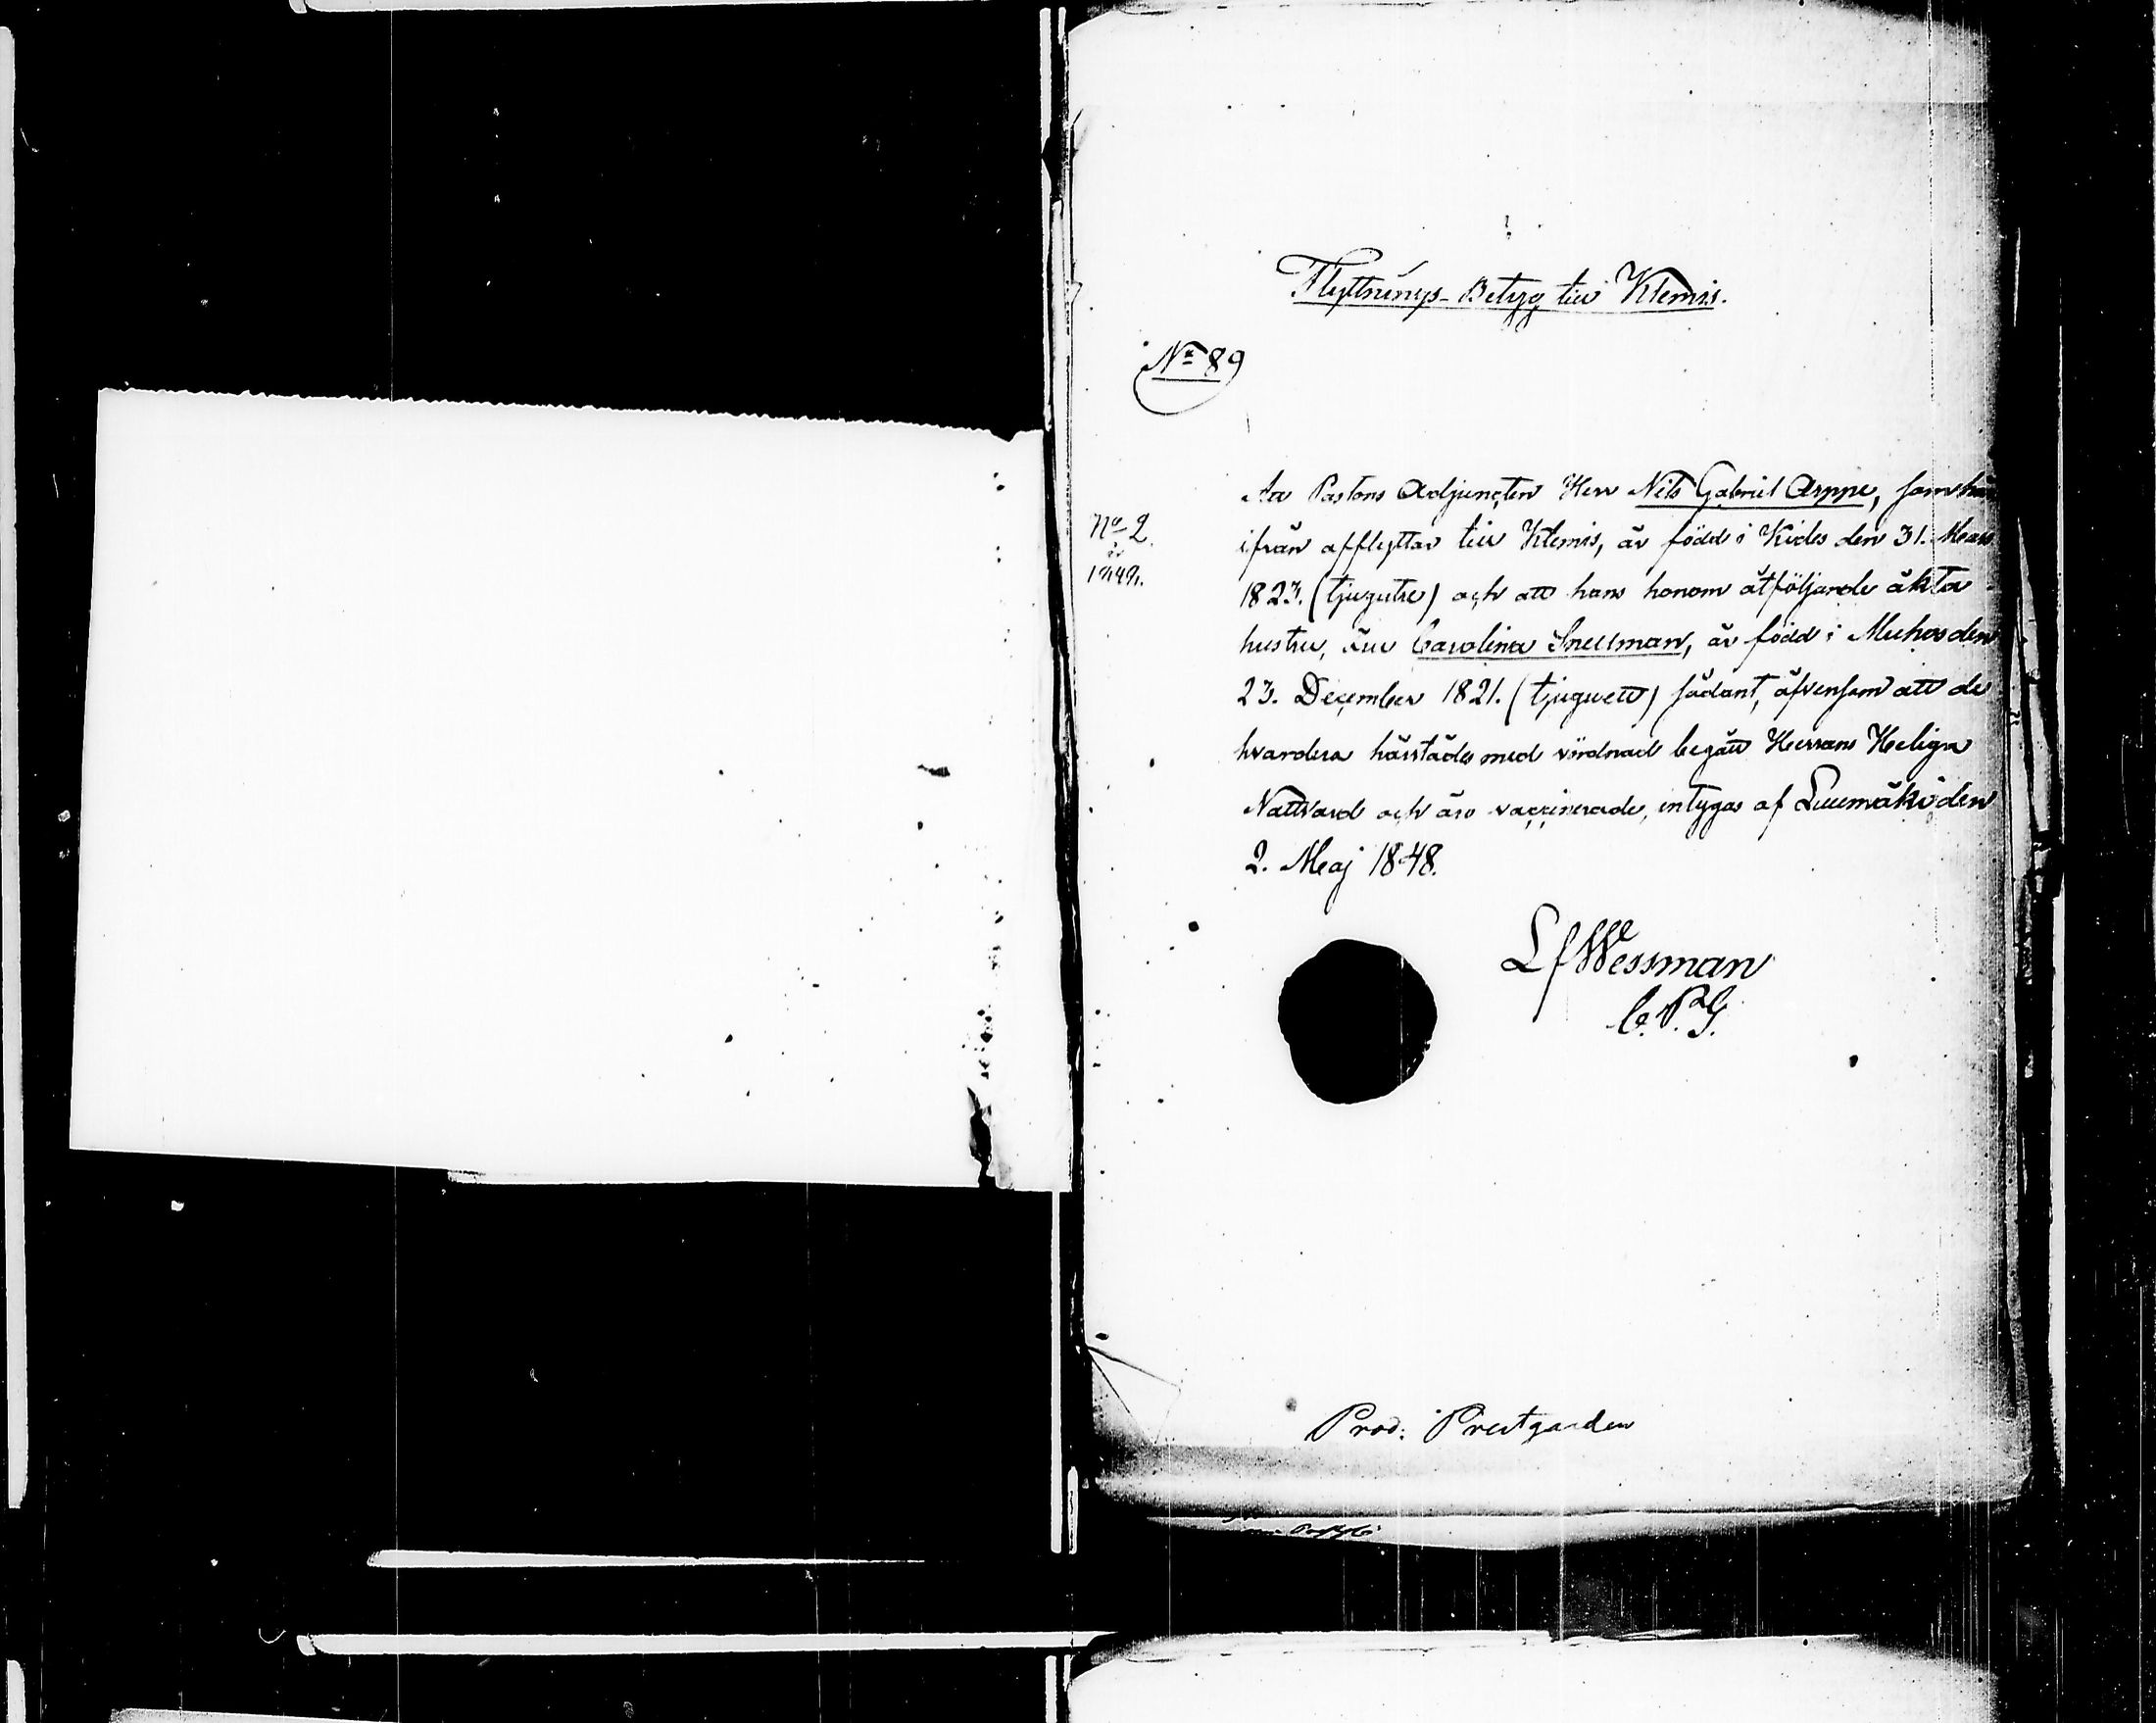 Flyttnings-Betyg till Klemis.
No 89
No 2.
år
1849.
Att Pastors Adjuncten Herr Nils Gabriel Arppe, som här
ifrån afflyttar till Klemis, är född i Kides den 31. Mars
1823. (tjugutre) och att hans honom åtföljande äkta
hustru, Fru Carolina Snellman, är född i Muhos den
23. December 1821. (tjuguett) sådant, äfvensom att de
hvardera härstädes med vördnad begått Herrans Heliga
Nattvard och äro vaccinerade, intygas af Luumäki den
2. Maj 1848.
LfWessman
C. P. G.
Prod: Prestgården